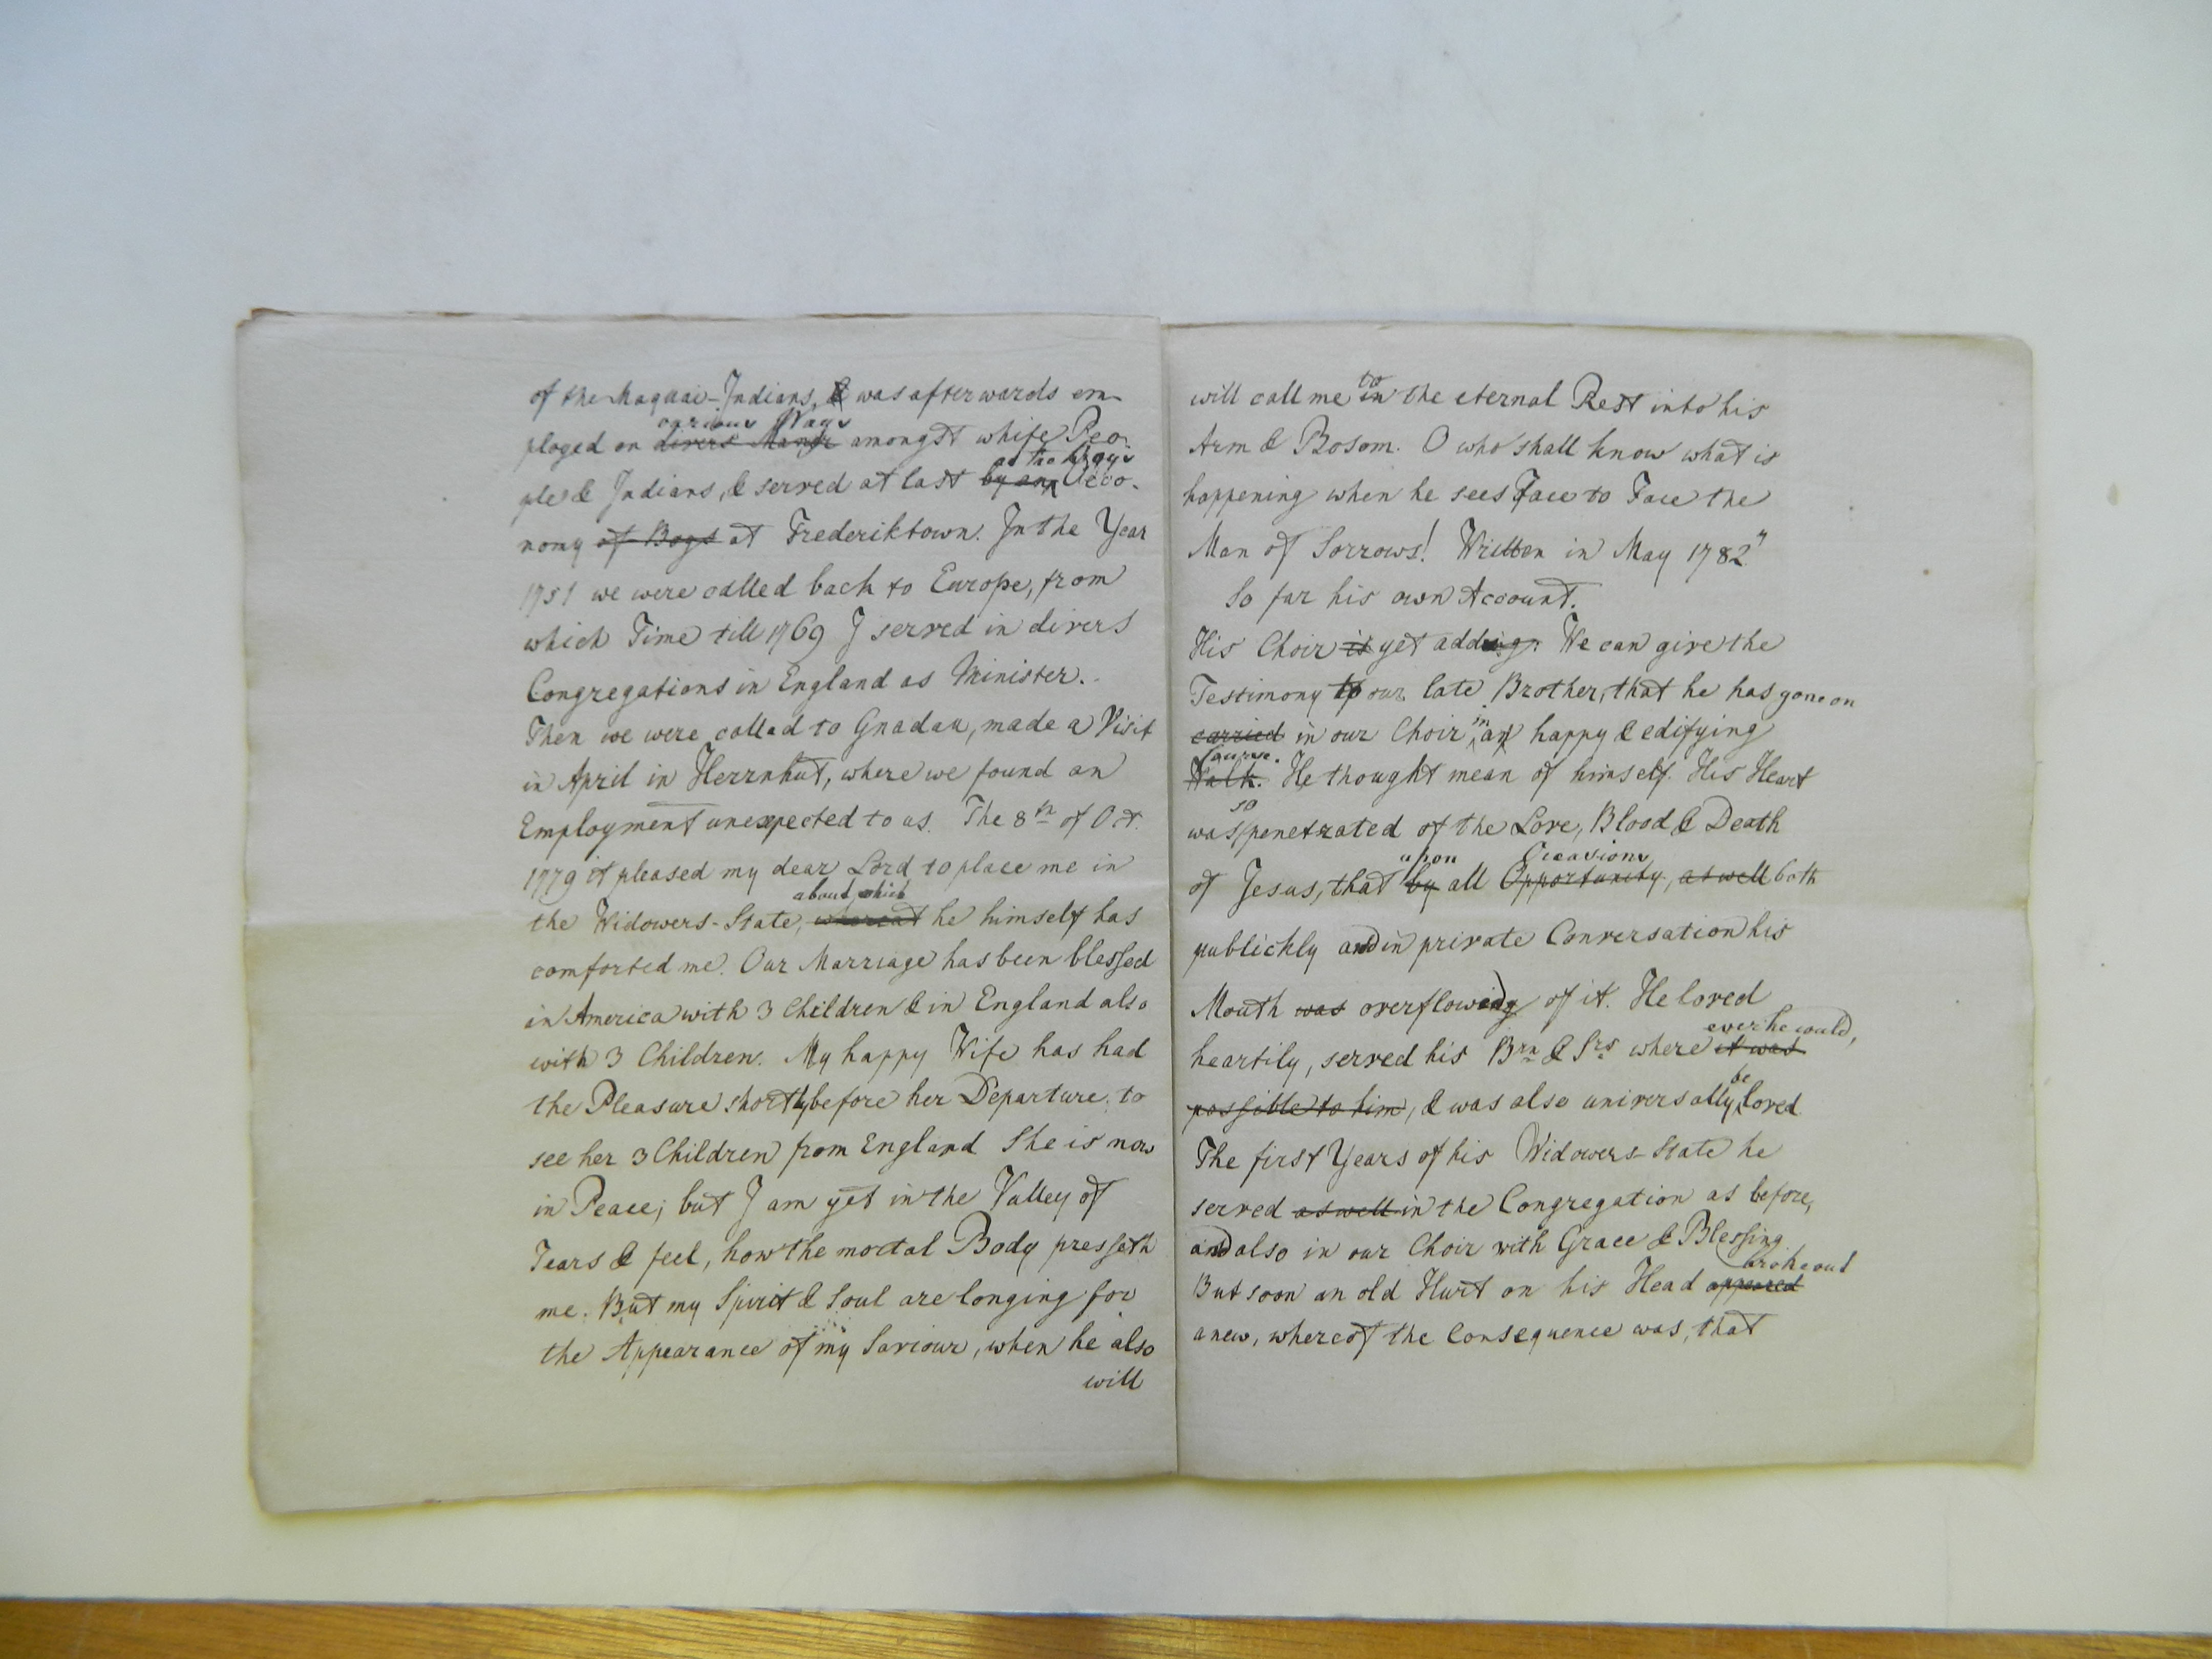 of the Maquai-Indians, & was afterwards em-
various Ways
ployed on divers Maner amongst white Peo-
at the Boys
ple & Indians, & served at last by an Oeco-
nomy of Boys at Frederiktown. In the Year
1751 we were called back to Europe, from
which Time till 1769 I served in divers
Congregations in England as Minister.
Then we were called to Gnadau, made a Visit
in April in Herrnhut, where we found an
Employment unexpected to us. The 8th of Oct.
1779 it pleased my dear Lord to place me in
about which
the Widowers-State, whereat he himself has
comforted me. Our Marriage has been blessed
in America with 3 Children & in England also
with 3 Children. My happy Wife has had
the Pleasure shortly before her Departure to
see her 3 Children from England She is now
in Peace; but I am yet in the Valley of
Tears & feel, how the mortal Body presseth
me. But my Spirit & Soul are longing for
the Appearance of my Saviour, when he also
will
to
will call me in the eternal Rest into his
Arm & Bosom. O who shall know what is
happening when he sees Face to Face the
Man of Sorrows! Written in May 1782"
So far his own Account.
His Choir is yet adding: We can give the
Testimony to our late Brother, that he has gone on
carried in our Choir in an happy & edifying
Course.
Walk. He thought mean of himself. His Heart
so
was penetrated of the Love, Blood & Death
upon Occasions
of Jesus, that by all Opportunity, as well both
publickly and in private Conversation his
Mouth was overflowing of it. He loved
ever he could,
heartily, served his Brn & Srs where it was
be
possible to him, & was also universally loved
The first Years of his Widowers-State he
served as well in the Congregation as before,
and also in our Choir with Grace & Blessing
broke out
But soon an old Hurt on his Head appeared
anew, whereof the Consequence was, that